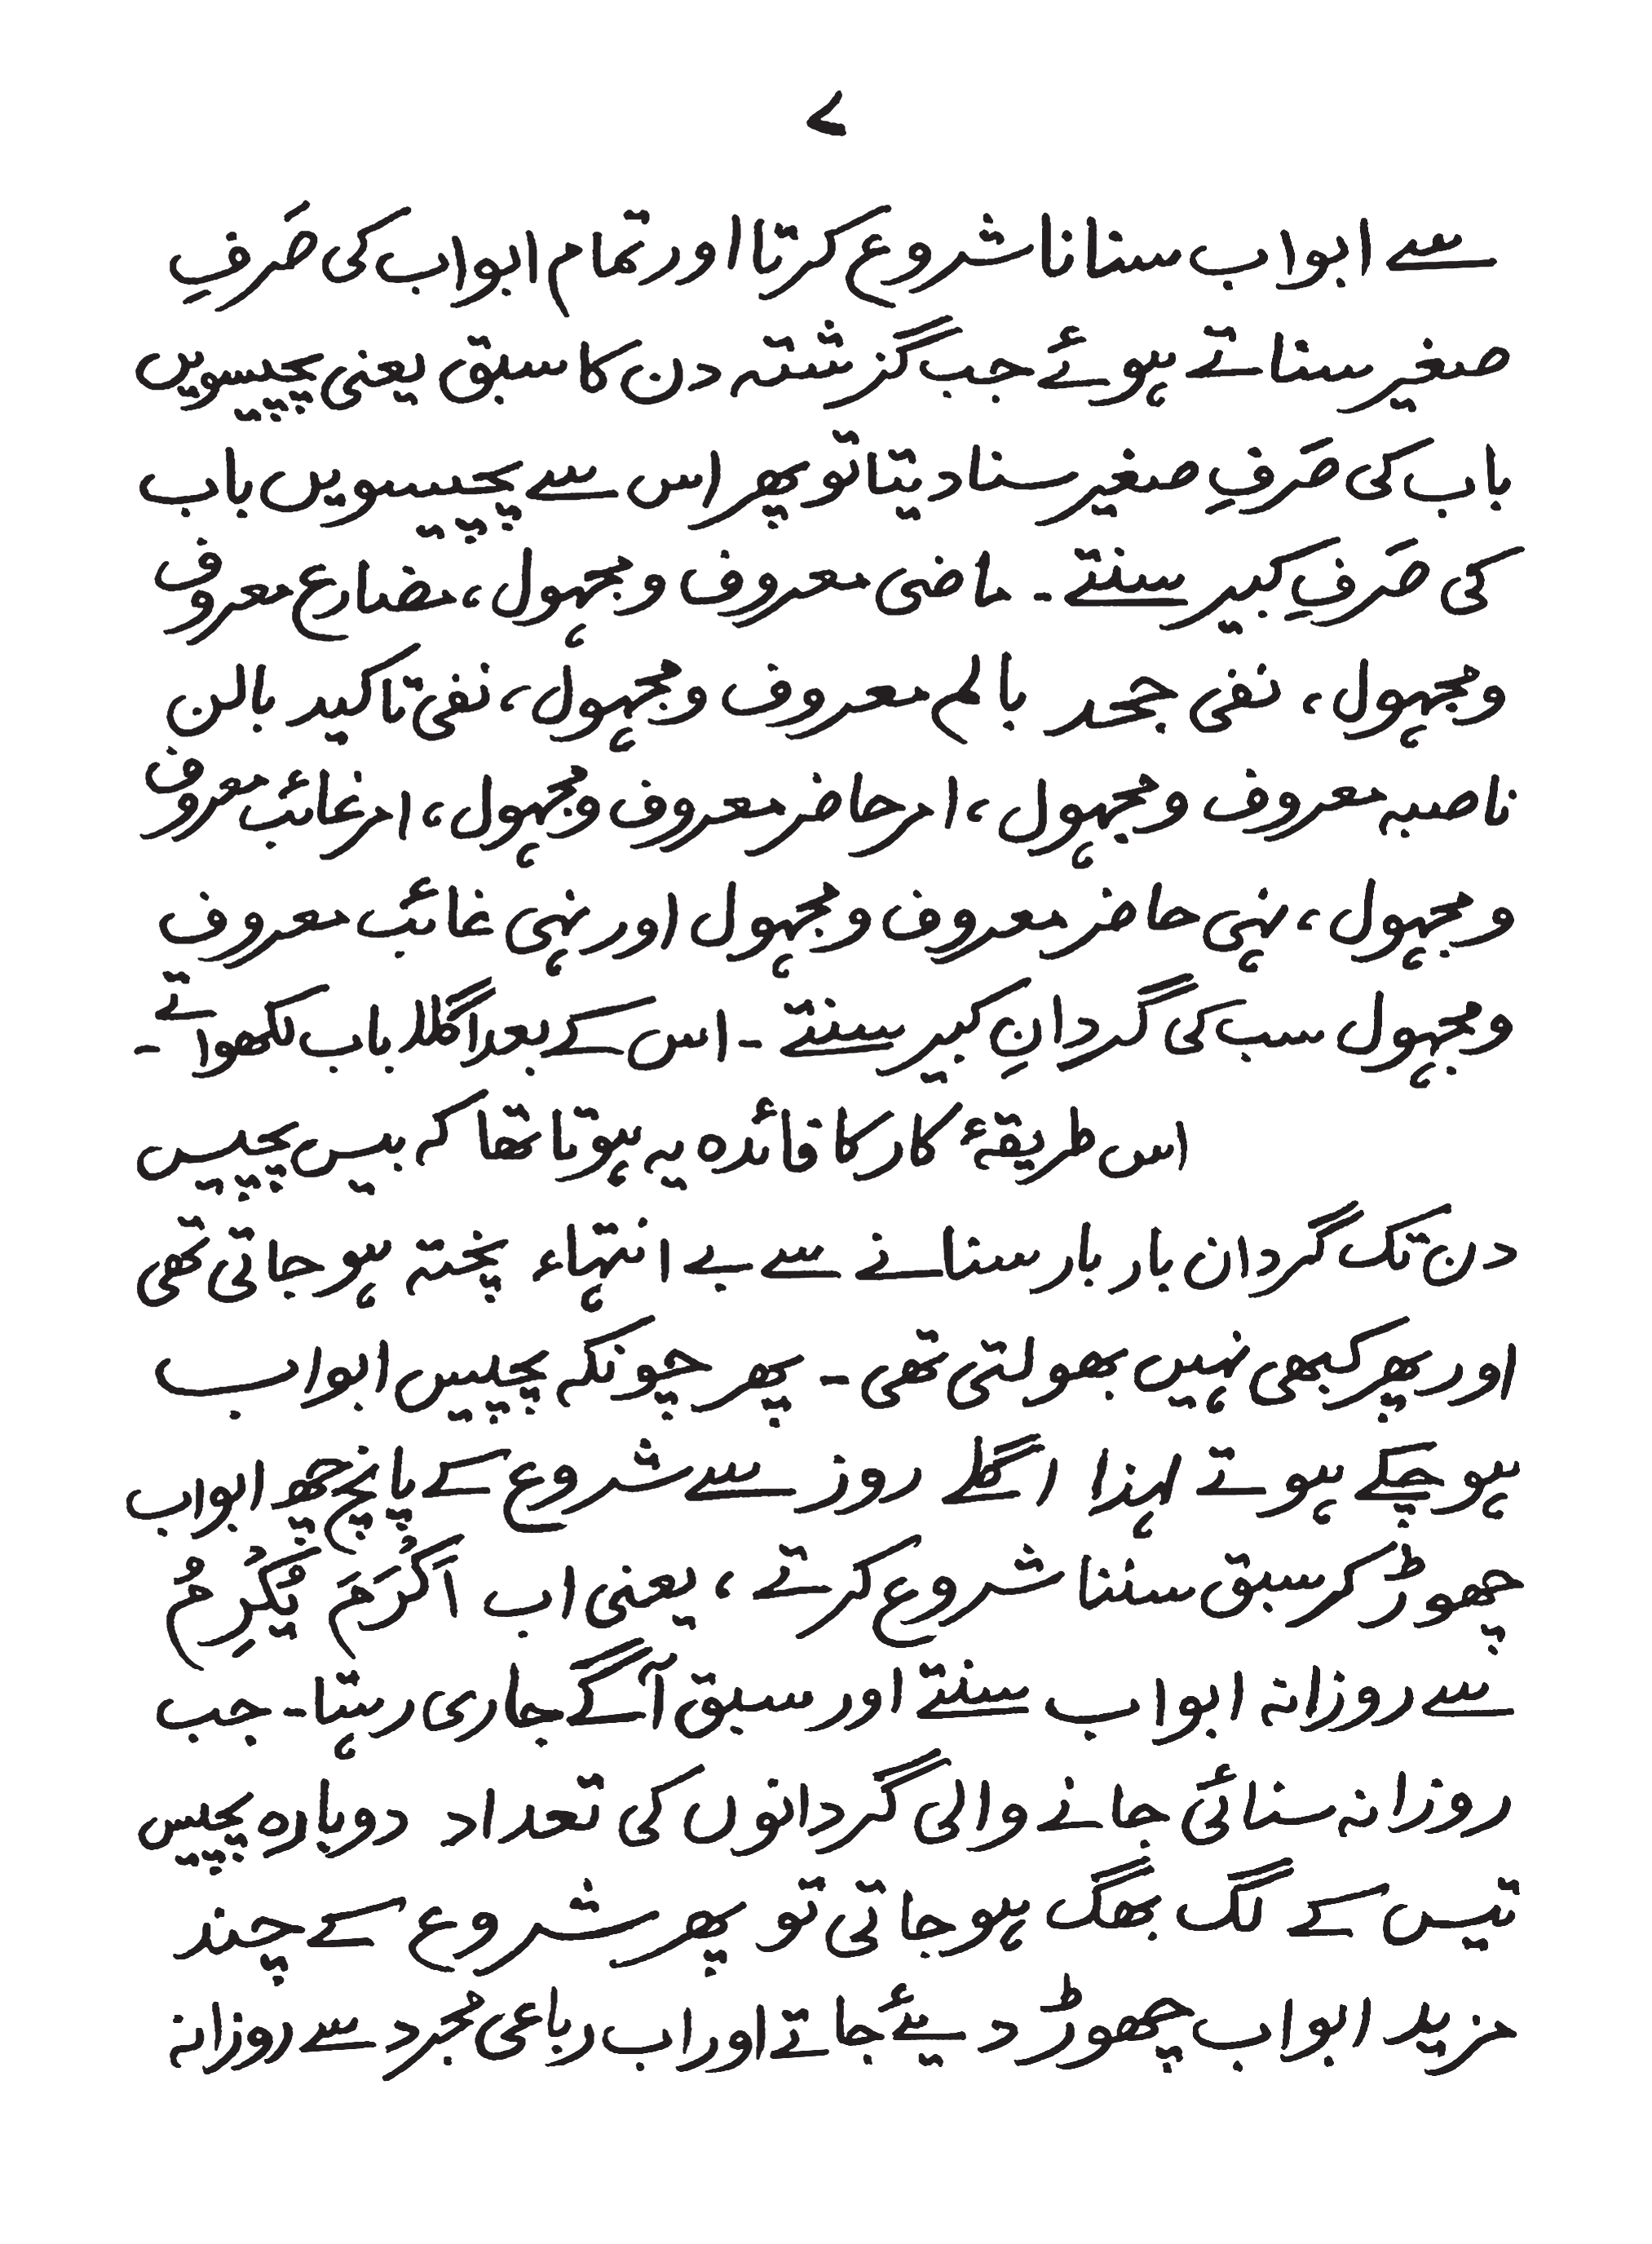 ۷
سے ابواب سنانا شروع کرتا اور تمام ابواب کی صَرفِ
صغیر سناتے ہوئے جب گزشتہ دن کا سبق یعنی پچیسویں
باب کی صَرفِ صغیر سنا دیتا تو پھر اس سے پچیسویں باب
کی صَرفِ کبیر سنتے ۔ ماضی معروف و مجہول، مضارع معروف
و مجہول، نفی جحد بالم معروف و مجہول، نفی تاکید بالن
ناصبہ معروف و مجہول، امر حاضر معروف و مجہول، امر غائب معروف
و مجہول، نہی حاضر معروف و مجہول اور نہی غائب معروف
و مجہول سب کی گردانِ کبیر سنتے ۔ اس کے بعد اگلا باب لکھواتے ۔
اس طریقۂ کار کا فائدہ یہ ہوتا تھا کہ بیس پچیس
دن تک گردان بار بار سنانے سے بے انتہاء پختہ ہو جاتی تھی
اور پھر کبھی نہیں بھولتی تھی ۔ پھر چونکہ پچیس ابواب
ہو چکے ہوتے لہذا اگلے روز سے شروع کے پانچ چھ ابواب
چھوڑ کر سبق سننا شروع کرتے، یعنی اب اَکْرَمَ یُکْرِمُ
سے روزانہ ابواب سنتے اور سبق آگے جاری رہتا ۔ جب
روزانہ سنائی جانے والی گردانوں کی تعداد دوبارہ پچیس
تیس کے لگ بھگ ہو جاتی تو پھر شروع کے چند
مزید ابواب چھوڑ دیئے جاتے اور اب رباعی مجرد سے روزانہ